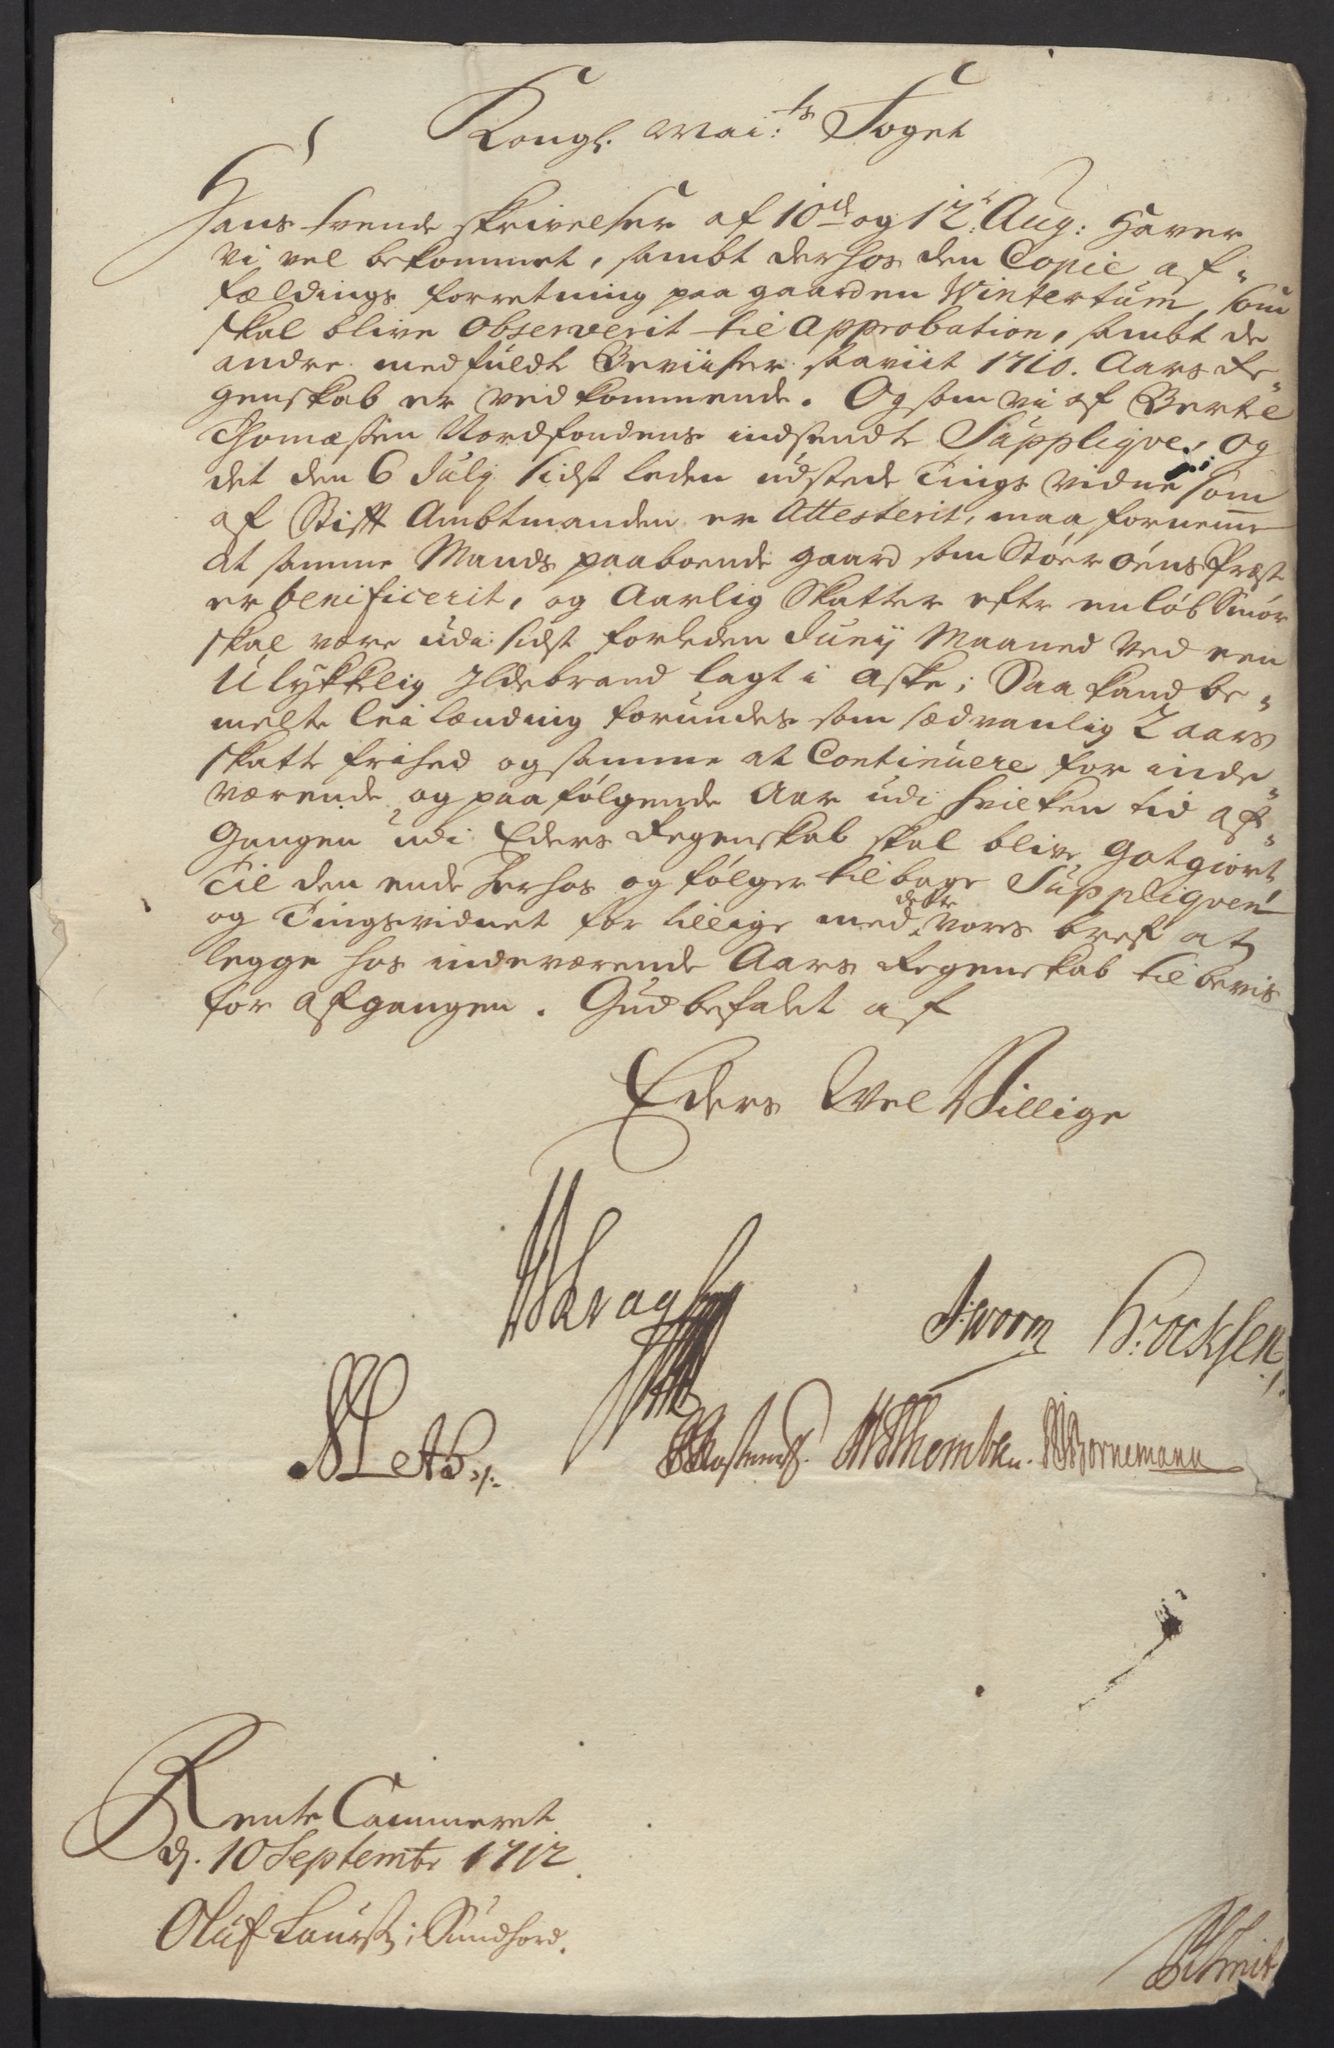 Kongl. Mai:ts Foget
Hans tvende skrivelser af 10de og 12te Aug: haver
vi vel bekommet, sambt derhos den Copie af-
fældings forretning paa gaarden Wintertum, som
skal blive observerit til Approbation, sambt de
andre medfuldte Beviiser saaviit 1710. Aars Re-
genskab er vedkommende. Og som vi af Bertel
Thomæssen Nordfondens indsendte Suppliqve, og
det den 6 July sidst leden udstede Tings vidne som
af Stifft Ambtmanden er Attesterit, maa fornemme
at samme Mands paaboende gaard som Støer øens Præst
er benificerit, og Aarlig Skatter efter en løb Smør
skal være udi sidst forleden Junij Maaned ved een
Ulykkelig Ildebrand lagt i Aske; Saa kand be-
melte leilænding forundes som sædvanlig 2 aars
skatte frihed og samme at Continuere for inde-
værende og paafølgende Aar udi hvilken tid af-
Gangen udi Eders Regenskab skal blive gotgiort
Til den ende herhos og følger tilbage Suppliqven
og Tingsvidnet for tillige med dette vores bref at
legge hos indeværende Aars Regenskab til bevis
for afgangen. Gud befalet af
Eders Vel Villige
WKragh
J: Worm H: Ocksen
Rostrup. Thombsen. Bornemann
Rente Cammeret
d. 10 Septembr 1712
Oluf Laurss: i Sundfiord.
Schmit